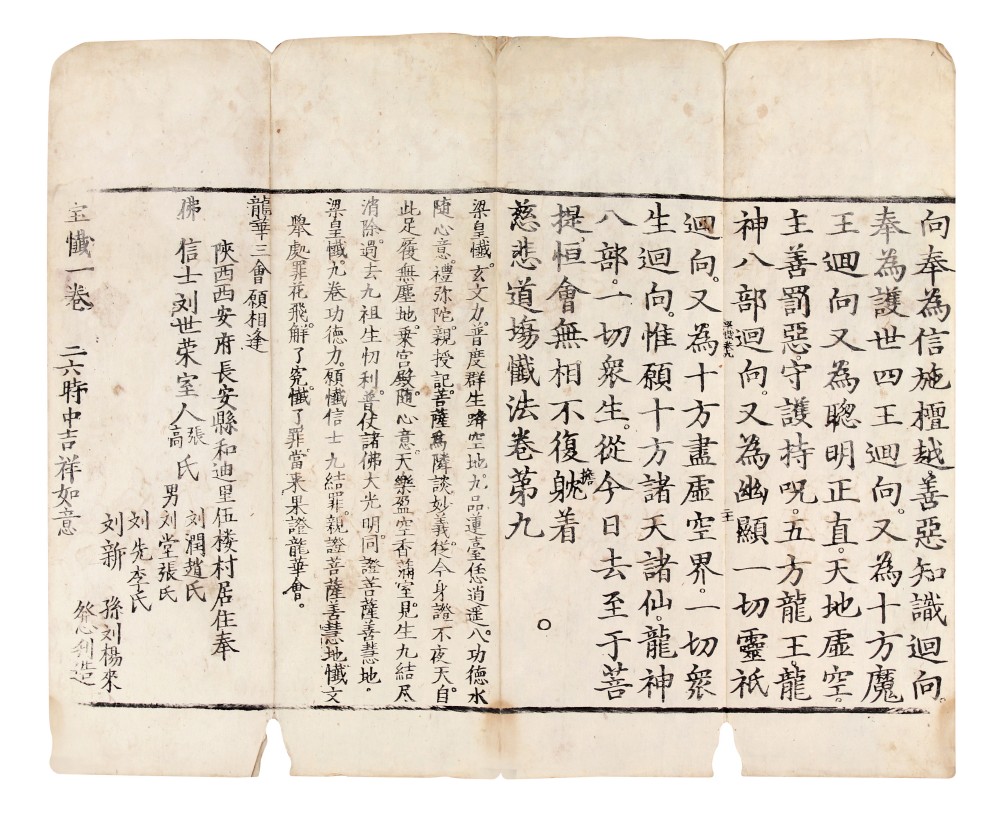 向奉為信施檀越善惡知識迴向。
奉為護世四王迴向。又為十方魔
王迴向又為聰明正直。天地虛空。
主善罰惡。守護持呪。五方龍王。龍
神八部迴向。又為幽顯一切靈祇
迴向。又為十方盡虛空界。一切衆
生迴向。惟願十方諸天諸仙。龍神
八部。一切衆生。從今日去至于菩
提。恒會無相不復躭着
慈悲道塲懺法卷第九
梁皇懺。玄文力。普度群生躋空地。九品蓮臺恁逍遥。八功德水
隨心意。禮弥陀親授記。菩薩為隣談妙義。從今身證不夜天。自
此足履無塵地。乗宮殿。隨心意。天樂盈空香滿室。見生九結尽
消除。過去九祖生忉利。普使諸佛大光明。同證菩薩善慧地。
梁皇懺。九卷功德力。願懺信士九結罪。親證菩薩善慧地懺文
舉處罪花飛。解了寃。懺了罪。當来果證龍華會。
龍華三會願相逢
陝西西安府長安縣和迪里伍楼村居住奉
佛 信士刘世荣室人張高氏 男刘堂張氏 刘潤趙氏
刘先李氏
刘新 孫刘楊來
宝懺一卷 二六時中吉祥如意 發心刋造